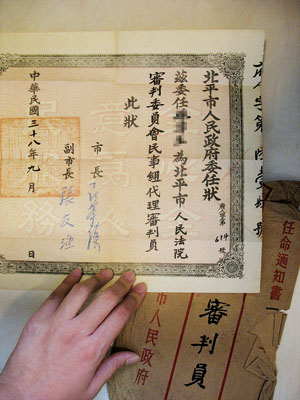 北平市人民政府委任狀
茲委任 為北平市人民法院
審判委員會民事組代理審判員
此狀
市長
副市長 張友漁
中華民國三十八年九月 日
任命通知書
審判員
市人民政府